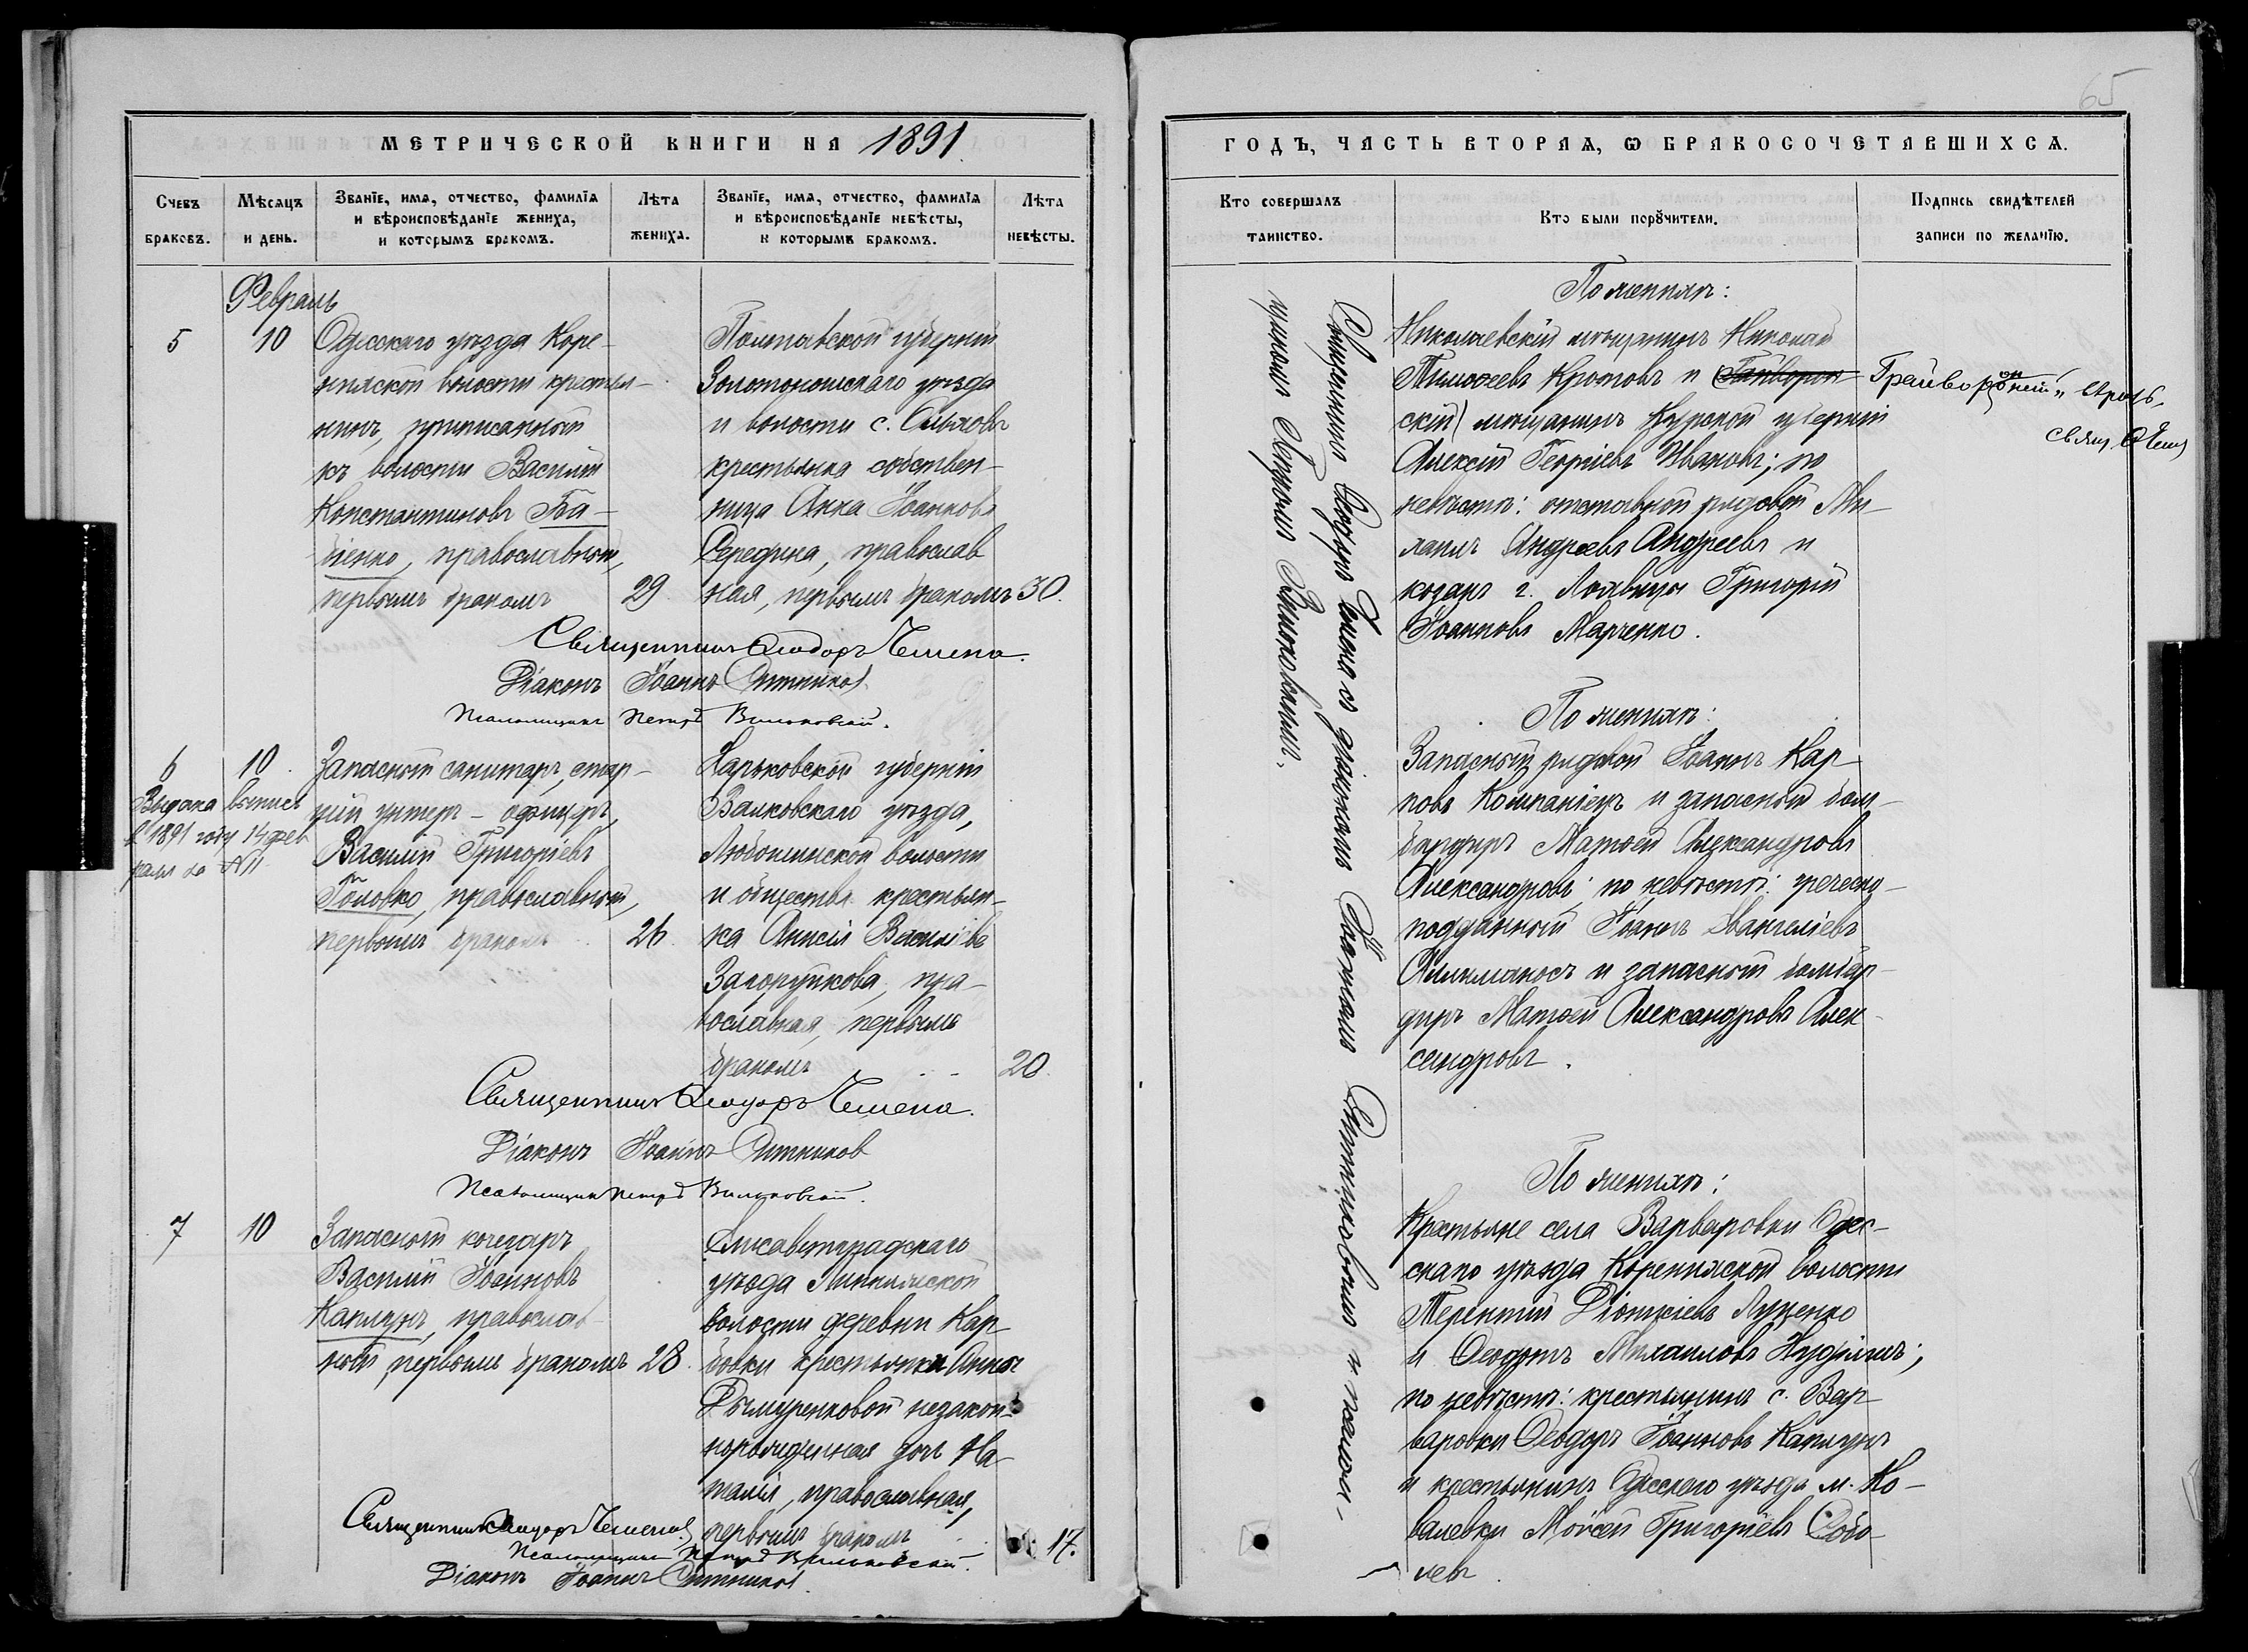 65
МЕТРИЧЕСКОЙ КНИГИ НА 1891
Счетъ браковъ.
Мѣсяцъ и день.
Званїе, имя, отчество, фамилїя и вѣроисповѣданїе жениха, и которымъ бракомъ.
Лѣта жениха.
Званїе, имя, отчество, фамилїя и вѣроисповѣданїе невѣсты, и которымъ бракомъ.
Лѣта невѣсты.
Февраль
5
10
Одесскаго уѣзда Коре-
нихской волости крестья-
нинъ, приписанный
къ волости Василій
Константиновъ Ба-
бенко, православный,
первымъ бракомъ
29
Полтавской губерніи
Золотоношскаго уѣзда
и волости с.
крестьянка собствен-
ница Анна Іоаннова
Середина, православ
ная, первымъ бракомъ
30.
Священникъ Ѳеодоръ Чемена.
Діаконъ Іоаннъ Ситников
Псаломщикъ Петръ Вильковскій.
6
10
Выдана выпись
в 1891 году 14 фев
раля за №
Запасный санитаръ, стар-
шій унтеръ-офицеръ,
Василій Григоріевъ
Головко, православный,
первымъ бракомъ
26.
Харьковской губерніи
Валковскаго уѣзда,
Люботинской волости
и общества крестьян-
ка Анисія Василіева
Загоруйкова, пра-
вославная, первымъ
бракомъ
20.
Священникъ Ѳеодоръ Чемена.
Діаконъ Іоаннъ Ситников
Псаломщикъ Петръ Вильковскій.
7
10
Запасный кочегаръ
Василій Іоанновъ
Каплунъ, православ-
ный, первымъ бракомъ
28.
Елисаветградскаго
уѣзда
волости деревни Кар
ловки крестьянки Анны
незакон-
норожденная дочь На-
талія, православная,
первымъ бракомъ
17.
Священникъ Ѳеодоръ Чемена
Псаломщикъ Петръ Вильковскій.
Діаконъ Іоаннъ Ситников
ГОДЪ, ЧАСТЬ ВТОРАЯ, Ѡ БРАКОСОЧЕТАВШИХСЯ.
Кто совершалъ таинство.
Кто были порꙋчители.
Подпись свидѣтелей записи по желанїю.
Священникъ Ѳеодоръ Чемена съ діакономъ Іоанномъ Ситниковымъ и псалом-
щикомъ Петромъ Вильковскимъ.
По женихѣ:
Николаевскій мѣщанинъ Николай
Тимоѳеевъ Кротовъ и Грайворон
скій мѣщанинъ Курской губерніи
Алексій Георгіевъ Ивановъ; по
невѣстѣ: отставной рядовой Ми-
хаилъ Андреевъ Андреевъ и
козакъ г. Лохвицы Григорій
Іоанновъ Марченко.
Грайворонскій
свящ. Ѳ. Чемен
По женихѣ:
Запасный рядовой Іоаннъ Кар
повъ Компаніецъ и запасный бом-
бардиръ Матѳей Александровъ
Александровъ; по невѣстѣ: греческо-
подданный Іоаннъ Евангеліевъ
и запасный бомбар-
диръ Матѳей Александровъ Алек-
сандровъ.
По женихѣ:
Крестьяне села Варваровки Одес-
скаго уѣзда Коренихской волости
Терентій Діонисіевъ Луценко
и Ѳеодотъ Михаиловъ
по невѣстѣ: крестьянинъ с. Вар-
варовки Ѳеодоръ Іоанновъ Каплунъ
и крестьянинъ Одесскаго уѣзда м. Ко-
валевки Моисей Григоріевъ Собо-
левъ.